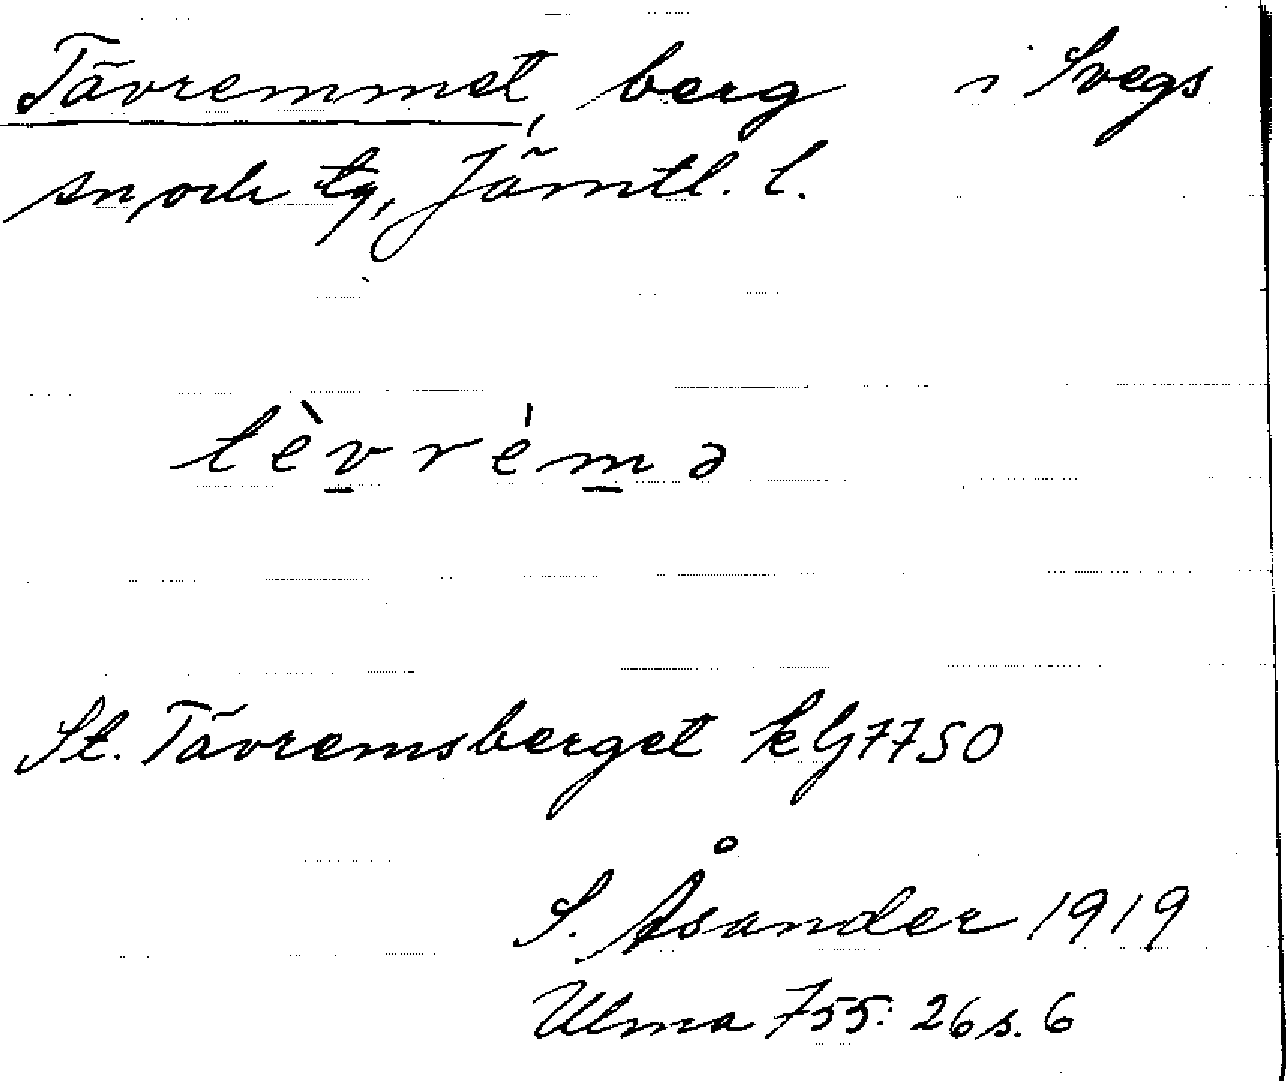 Tävremmet, berg i Svegs
sn och tg, Jämtl. l.
tèv̲rém̲ə
St. Tävremsberget kG7750
S. Åsander 1919
Ulma 755: 26 s. 6